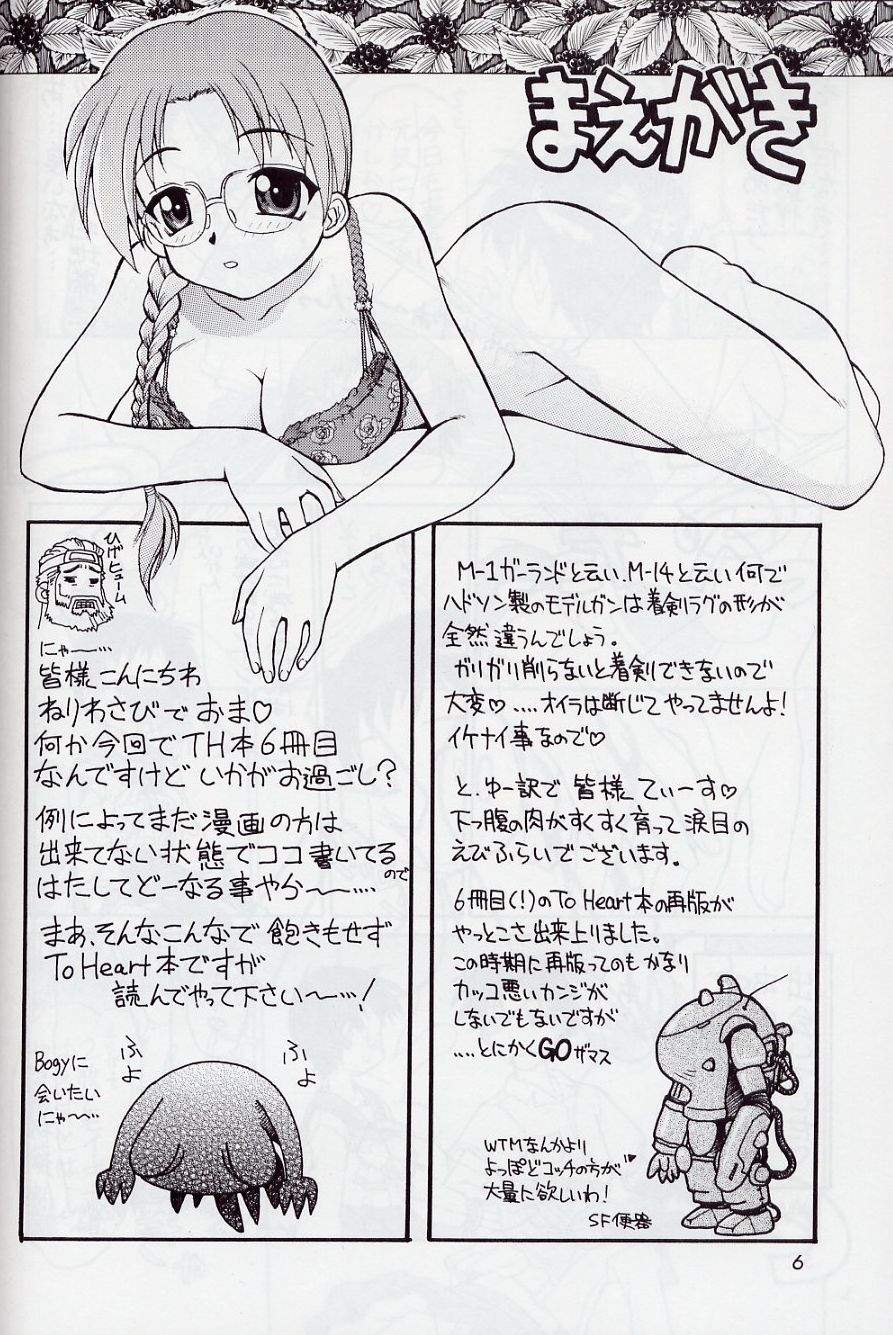 まえがき
ひげヒューム
にゃー…
皆様こんにちわ
ねりわさびでおま♡
何か今回でTH本6冊目
なんですけどいかがお過ごし?
例によってまだ漫画の方は
出来てない状態でココ書いてるので
はたしてどーなる事やら〜…
まあ、そんなこんなで飽きもせず
To Heart本ですが
読んでやって下さい〜…!
Bogyに
会いたい
にゃ〜…
ふよ
ふよ
M-1ガーランドと云い、M-14と云い何で
ハドソン製のモデルガンは着剣ラグの形が
全然違うんでしょう。
ガリガリ削らないと着剣できないので
大変♡....オイラは断じてやってませんよ!
イケナイ事なので♡
と、ゆー訳で皆様てぃーす♡
下っ腹の肉がすくすく育って涙目の
えびふらいでございます。
6冊目(!)のTo Heart本の再版が
やっとこさ出来上りました。
この時期に再版ってのもかなり
カッコ悪いカンジが
しないでもないですが
....とにかくGOザマス
WTMなんかより
よっぽどコッチの方が
大量に欲しいわ!
SF便器
6